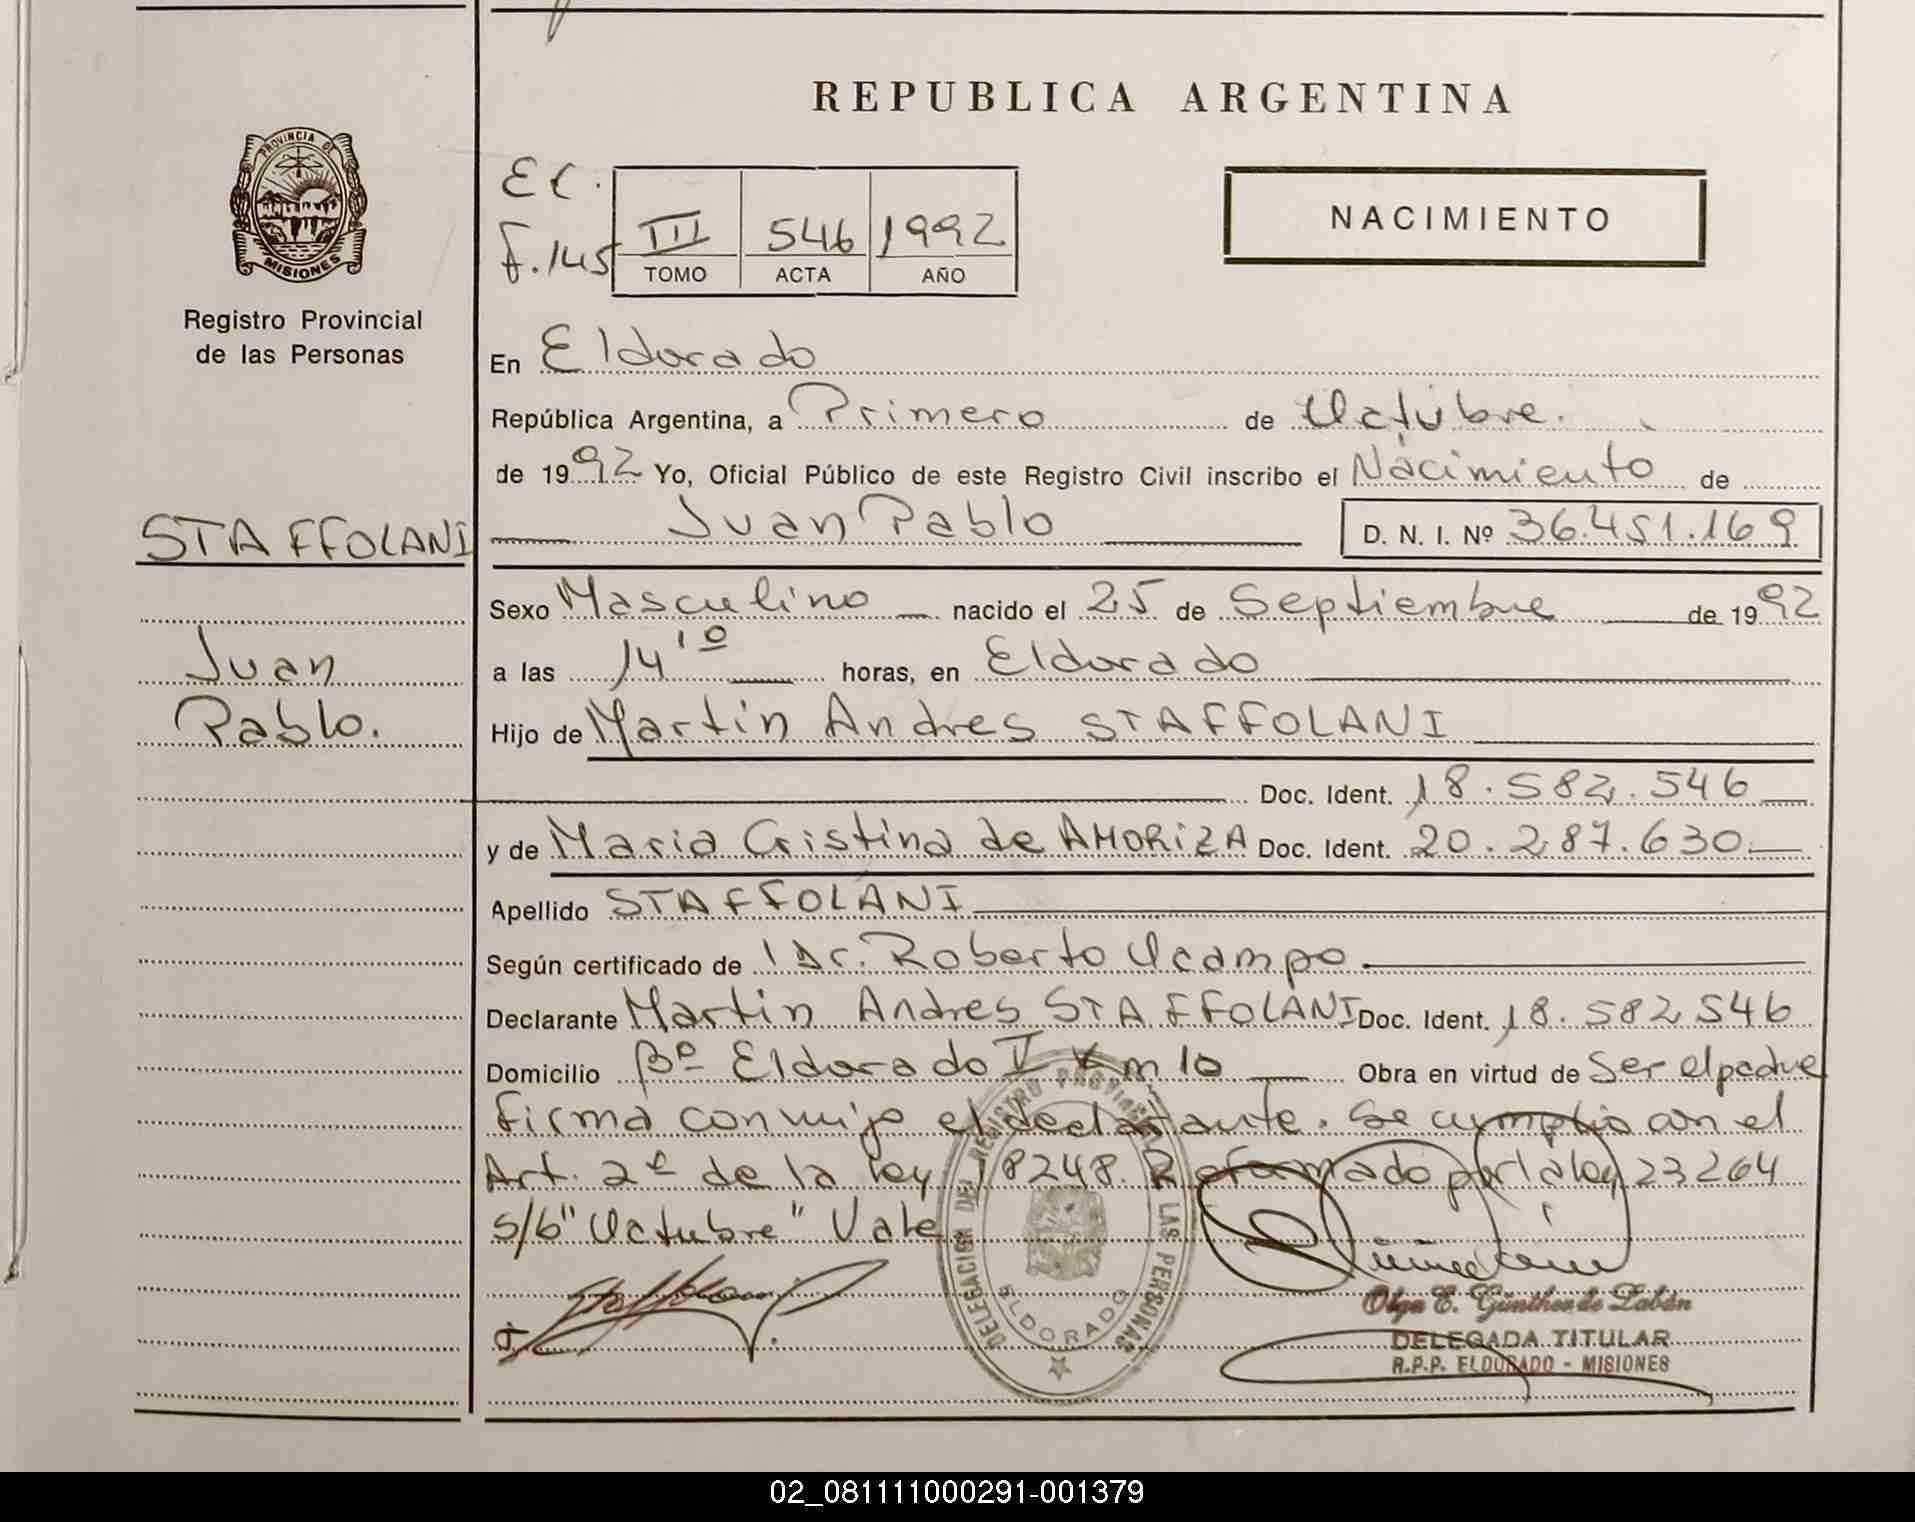 REPUBLICA ARGENTINA
PROVINCIA DE
MISIONES
Registro Provincial
de las Personas
EC.
F.145
III 546 1992
TOMO ACTA AÑO
NACIMIENTO
En Eldorado
República Argentina, a Primero de Octubre.
de 1992 Yo, Oficial Público de este Registro Civil inscribo el Nacimiento de
STAFFOLANI
Juan Pablo
D. N. I. Nº 36.451.169
Sexo Masculino nacido el 25 de Septiembre de 1992
Juan
a las 14'º horas, en Eldorado
Pablo.
Hijo de Martin Andres STAFFOLANI
Doc. Ident. 18.582.546
y de Maria Cristina de AMORIZA Doc. Ident. 20.287.630
Apellido STAFFOLANI
Según certificado de Dr. Roberto Ocampo
Declarante Martin Andres STAFFOLANI Doc. Ident. 18.582.546
Domicilio Bº Eldorado V Km 10 Obra en virtud de Ser el padre
firma conmigo el declarante. Se cumplio con el
Art. 2º de la ley 18248. Reformado por la ley 23264
s/b "Octubre" Vale
DELEGACION DEL REGISTRO PROVINCIAL DE LAS PERSONAS
ELDORADO
Staffolani
Olga E. Günther de Zabán
DELEGADA TITULAR
R.P.P. ELDORADO - MISIONES
02_081111000291-001379